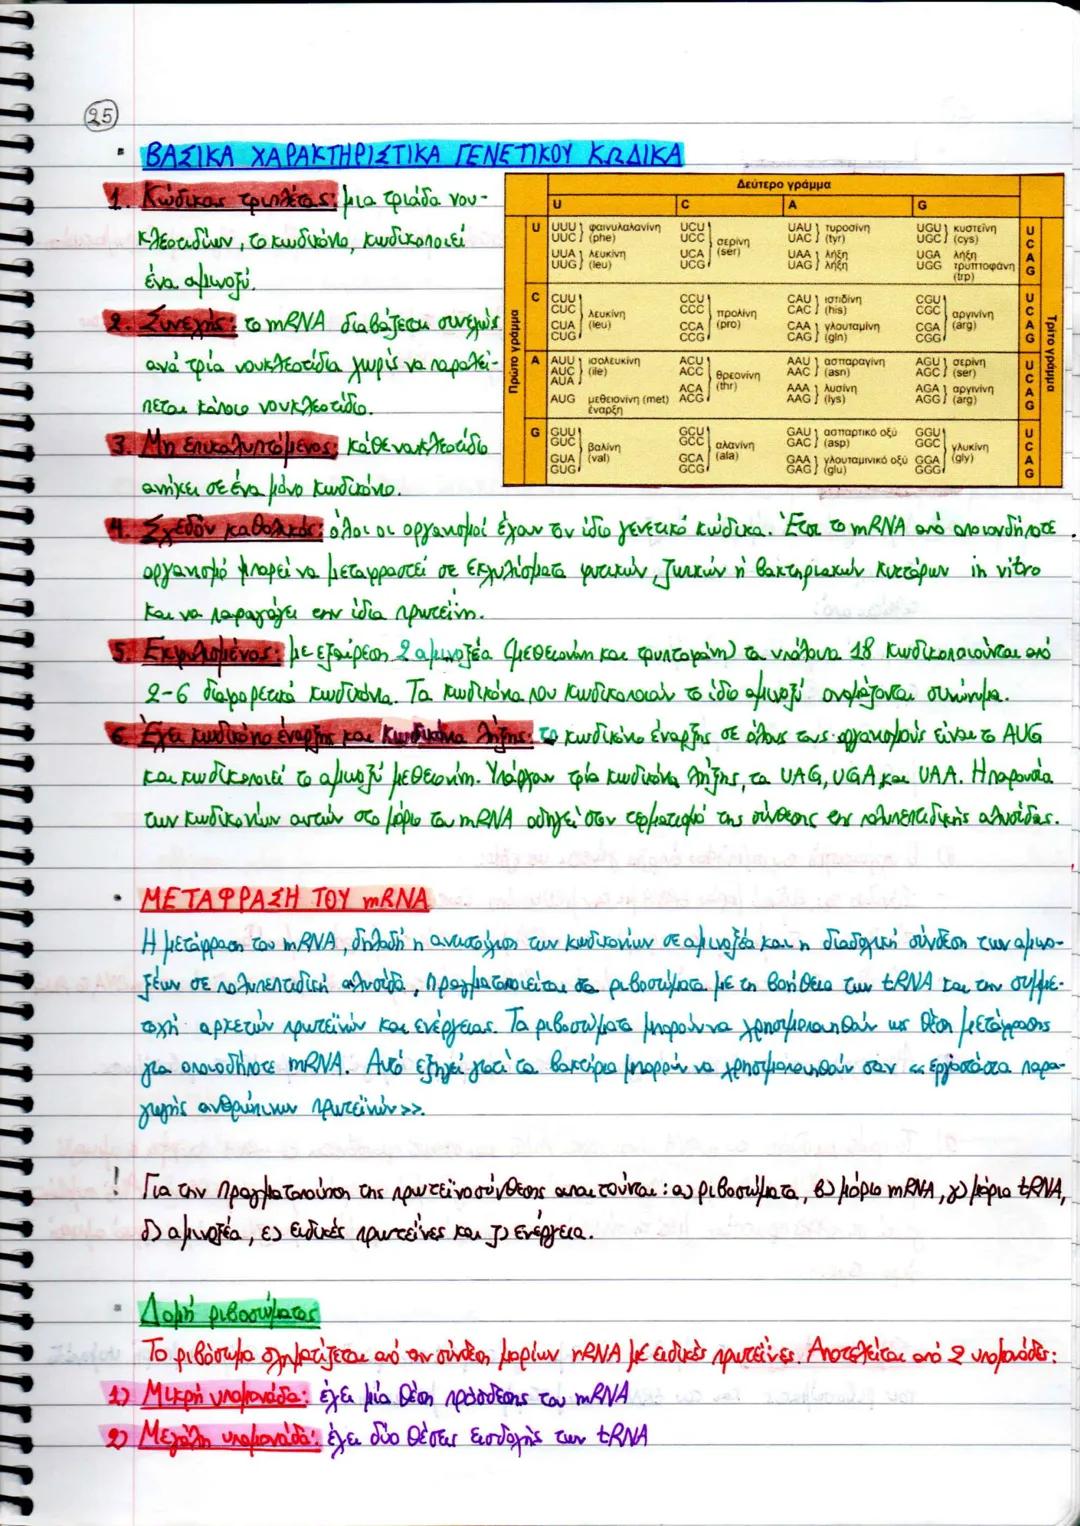 25
ΒΑΣΙΚΑ ΧΑΡΑΚΤΗΡΙΣΤΙΚΑ ΓΕΝΕΤΙΚΟΥ ΚΩΔΙΚΑ
1. Κώδικας τριπλέτας: μια τριάδα νου-
κλεοτιδίων, το κωδικόνιο, κωδικοποιεί
ένα αμινοξύ.
2. Συνεχής: το mRNA διαβάζεται συνεχώς
ανά τρία νουκλεοτίδια χωρίς να παραλεί-
πεται κάποιο νουκλεοτίδιο.
3. Μη επικαλυπτόμενος: κάθε νουκλεοτίδιο
ανήκει σε ένα μόνο κωδικόνιο.
Δεύτερο γράμμα
U C A G
Πρώτο γράμμα
Τρίτο γράμμα
U UUU φαινυλαλανίνη UCU UAU τυροσίνη UGU κυστεΐνη U
UUC (phe) UCC σερίνη UAC (tyr) UGC (cys) C
UUA λευκίνη UCA (ser) UAA λήξη UGA λήξη A
UUG (leu) UCG UAG λήξη UGG τρυπτοφάνη G
(trp)
C CUU CCU CAU ιστιδίνη CGU U
CUC λευκίνη CCC προλίνη CAC (his) CGC αργινίνη C
CUA (leu) CCA (pro) CAA γλουταμίνη CGA (arg) A
CUG CCG CAG (gln) CGG G
A AUU ισολευκίνη ACU AAU ασπαραγίνη AGU σερίνη U
AUC (ile) ACC θρεονίνη AAC (asn) AGC (ser) C
AUA ACA (thr) AAA λυσίνη AGA αργινίνη A
AUG μεθειονίνη (met) ACG AAG (lys) AGG (arg) G
έναρξη
G GUU GCU GAU ασπαρτικό οξύ GGU U
GUC βαλίνη GCC αλανίνη GAC (asp) GGC γλυκίνη C
GUA (val) GCA (ala) GAA γλουταμινικό οξύ GGA (gly) A
GUG GCG GAG (glu) GGG G
4. Σχεδόν καθολικός: όλοι οι οργανισμοί έχουν τον ίδιο γενετικό κώδικα. Έτσι το mRNA από οποιονδήποτε
οργανισμό μπορεί να μεταφραστεί σε εκχυλίσματα φυτικών, ζωικών ή βακτηριακών κυττάρων in vitro
και να παραγάγει την ίδια πρωτεΐνη.
5. Εκφυλισμένος: με εξαίρεση 2 αμινοξέα (μεθειονίνη και τρυπτοφάνη) τα υπόλοιπα 18 κωδικοποιούνται από
2-6 διαφορετικά κωδικόνια. Τα κωδικόνια που κωδικοποιούν το ίδιο αμινοξύ ονομάζονται συνώνυμα.
6. Έχει κωδικόνιο έναρξης και κωδικόνια λήξης: το κωδικόνιο έναρξης σε όλους τους οργανισμούς είναι το AUG
και κωδικοποιεί το αμινοξύ μεθειονίνη. Υπάρχουν τρία κωδικόνια λήξης, τα UAG, UGA και UAA. Η παρουσία
των κωδικονίων αυτών στο μόριο του mRNA οδηγεί στον τερματισμό της σύνθεσης της πολυπεπτιδικής αλυσίδας.
ΜΕΤΑΦΡΑΣΗ ΤΟΥ mRNA
Η μετάφραση του mRNA, δηλαδή η αντιστοίχιση των κωδικονίων σε αμινοξέα και η διαδοχική σύνδεση των αμινο-
ξέων σε πολυπεπτιδική αλυσίδα, πραγματοποιείται στα ριβοσώματα με τη βοήθεια των tRNA και την συμμε-
τοχή αρκετών πρωτεϊνών και ενέργειας. Τα ριβοσώματα μπορούν να χρησιμοποιηθούν ως θέση μετάφρασης
για οποιοδήποτε mRNA. Αυτό εξηγεί γιατί τα βακτήρια μπορούν να χρησιμοποιηθούν σαν << εργοστάσια παρα-
γωγής ανθρώπινων πρωτεϊνών>>.
! Για την πραγματοποίηση της πρωτεϊνοσύνθεσης απαιτούνται: α) ριβοσώματα, β) μόριο mRNA, γ) μόρια tRNA,
δ) αμινοξέα, ε) ειδικές πρωτεΐνες και ζ) ενέργεια.
Δομή ριβοσώματος
Το ριβόσωμα σχηματίζεται από την σύνδεση μορίων rRNA με ειδικές πρωτεΐνες. Αποτελείται από 2 υπομονάδες:
1) Μικρή υπομονάδα: έχει μία θέση πρόσδεσης του mRNA
2) Μεγάλη υπομονάδα: έχει δύο θέσεις εισδοχής των tRNA